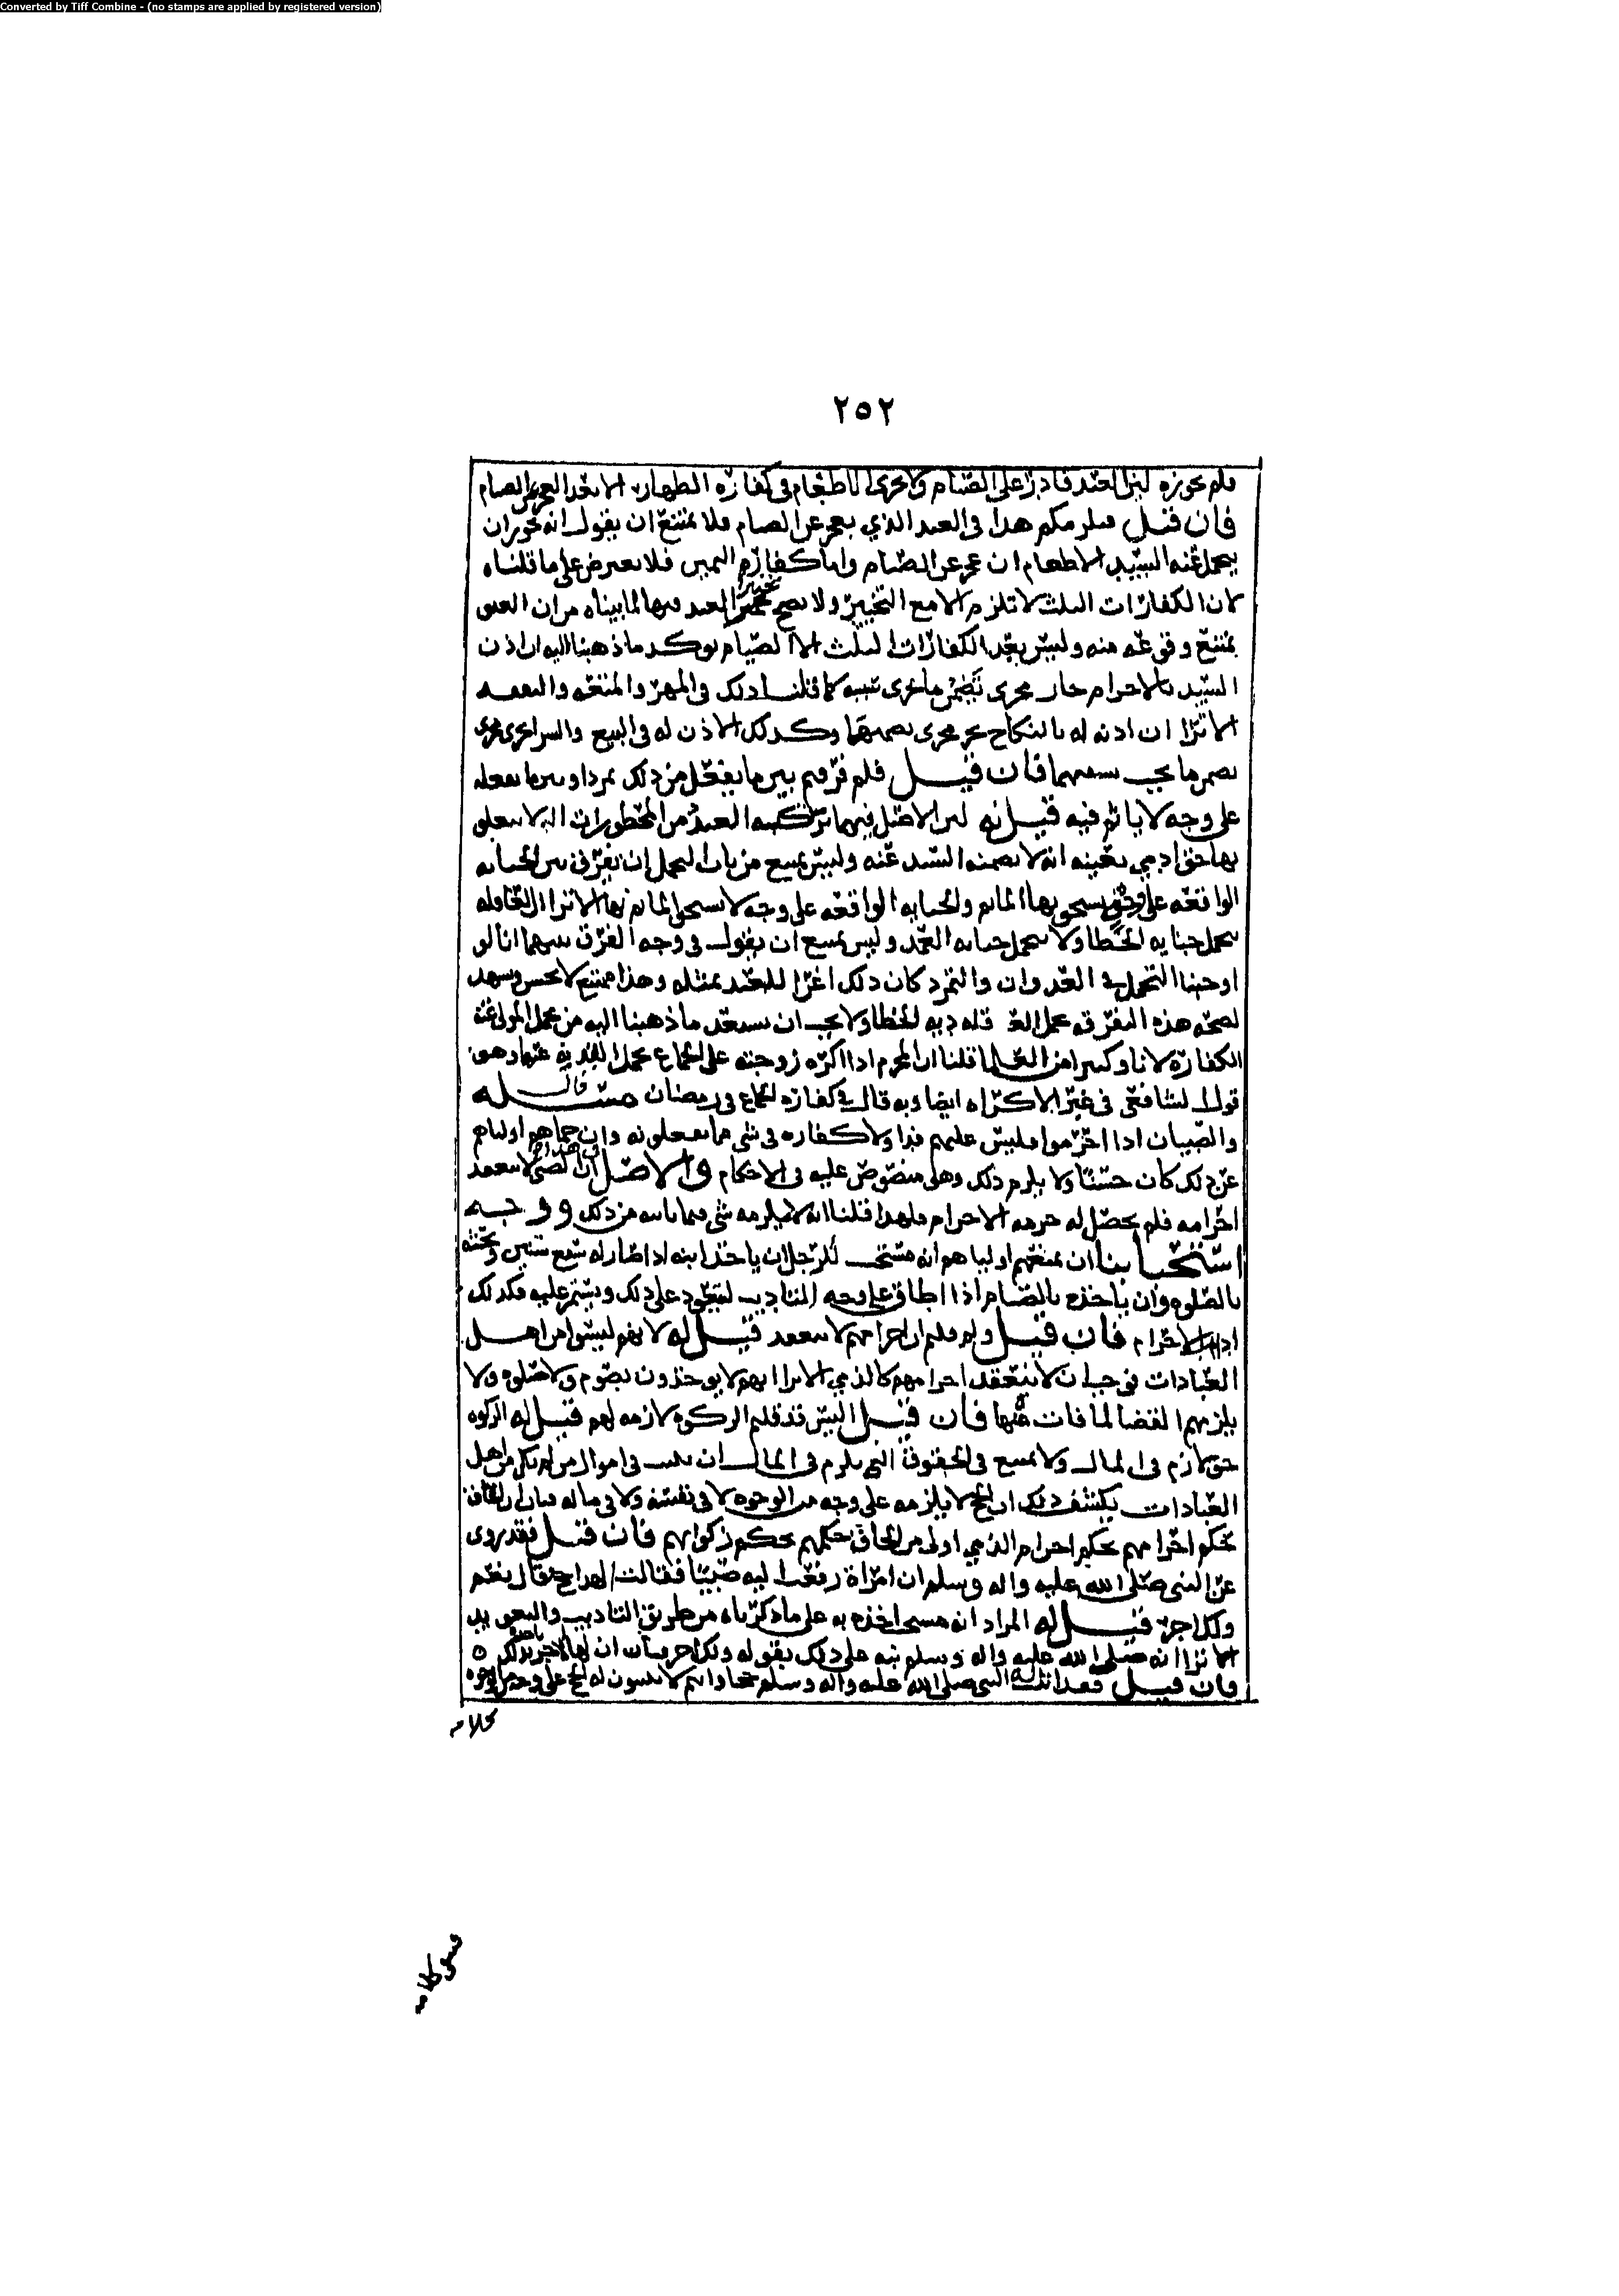 Converted by Tiff Combine - (no stamps are applied by registered version)
٢٥٢
فلم يجوزه لنا العبد قادرا على الصيام ولا يجزي الاطعام في كفارة الظهار الا بعد العجز عن الصيام
فان قيل هذا في العبد الذي يعجز عن الصيام فلا يمتنع ان يقول انه يجوز ان
يتحمل عنه السيد الاطعام ان عجز عن الصيام واما كفارة اليمين فلا يعترض على ما قلناه
لان الكفارات الثلث لا تلزم الا مع التخيير ولا يصح تخيير العبد فيها لما بيناه من ان العتق
يمتنع وقوعه منه وليس بعد الكفارات الثلث الا الصيام يوكد ما ذهبنا اليه ان اذن
السيد بالاحرام جار مجرى تضمن ما جرى بسببه كما قلنا ذلك في المهر والمنفعه والنفقه
الا ترا ان اذنه له بالنكاح يجري مجرى تضمنها وكذلك الاذن له في البيع والشرا يجري مجرى
تضمن ما يجب بسببهما فان قيل فلم فرقتم بين ما يفعل من ذلك تمردا وبين ما يفعله
على وجه لا ياثم فيه قيل له لان الاصل فيما يرتكبه العبد من المحظورات التي لا يتعلق
بها حق ادمي بعينه انه لا يضمنه السيد عنه وليس يمتنع من باب التحمل ان يفرق بين الجنايه
الواقعه على وجه يستحق بها الماثم والجنايه الواقعه على وجه لا يستحق الماثم بها الا ترا ان العاقله
تتحمل جنايه الخطا ولا تتحمل جنايه العمد وليس يمتنع ان يقول في وجه الفرق بينهما انا لو
اوجبنا التحمل في العدوان والتمرد كان ذلك اغرا للعبد بمثله وهذا ممتنع لا يحسن ويشهد
لصحه هذه التفرقه تحمل العاقله ديه الخطا ولا يجب ان يستبعد ما ذهبنا اليه من تحمل المولى عنه
الكفارة لانا وكثير من العلما قلنا ان المحرم اذا اكره زوجته على الجماع تحمل الفديه عنها وهو
قول الشافعي في غير الاكراه ايضا وبه قال في كفارة الجماع في رمضان مسئله قال
والصبيان اذا احرموا فليس عليهم فدا ولا كفاره في شي مما يفعلونه وان حماهم اولياهم
عن ذلك كان حسنا ولا يلزم ذلك وهذا منصوص عليه في الاحكام والاصل في هذا ان الصبي لا ينعقد
احرامه فلم يحصل له حرمه الاحرام فلهذا قلنا انه لا يلزمه شي فيما ياتيه من ذلك ووجه
استحبابنا ان يمنعهم اولياهم انه مستحب للرجل ان ياخذ ابنه اذا صار له سبع سنين
بالصلوه وان ياخذه بالصيام اذا اطاق على وجه التاديب ليتعود على ذلك ويستمر عليه فكذلك
اداب الاحرام فان قيل ولم قلتم ان احرامهم لا ينعقد قيل له لانهم ليسوا من اهل
العبادات فوجب ان لا ينعقد احرامهم كالذمي الا ترا انهم لا يوخذون بصوم ولا صلوه ولا
يلزمهم القضا لما فات منها فان قيل اليس قد قلتم الزكوه لازمه لهم قيل له الزكوه
حق لازم في المال ولا يمتنع في الحقوق التي تلزم في المال ان تثبت في اموال من لم يكن من اهل
العبادات يكشف ذلك ان الحج لا يلزمه على وجه من الوجوه لا في نفسه ولا في ماله فبان ان الحاق
حكم احرامهم بحكم احرام الذمي اولى من الحاق حكمهم بحكم زكواتهم فان قيل فقد روي
عن النبي صلى الله عليه واله وسلم ان امراة رفعت اليه صبيا فقالت الهذا حج فقال نعم
ولك اجر قيل له المراد انه يستحب اخذه به على ما ذكرناه من طريق التاديب والتعويد
الا ترا انه صلى الله عليه واله وسلم نبه على ذلك بقوله ولك اجر فبان ان لها الاجر بذلك ه
فان قيل فقد اثبت له النبي صلى الله عليه واله وسلم حجا وانتم لا تثبتون له الحج على وجه من الوجوه